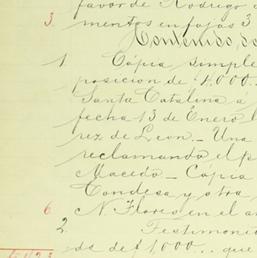 favor de Rodrigo
3 mentos en fojas 3
Contenido, so
1 Copia simple
posicion de 4,000.
Santa Catalina a
fecha 13 de Enero
rez de Leon - Una
reclamando el p
Macedo - Copia
Condesa y otra
6 N. Flores en el a
2. Testimonio
de $1,000.. que